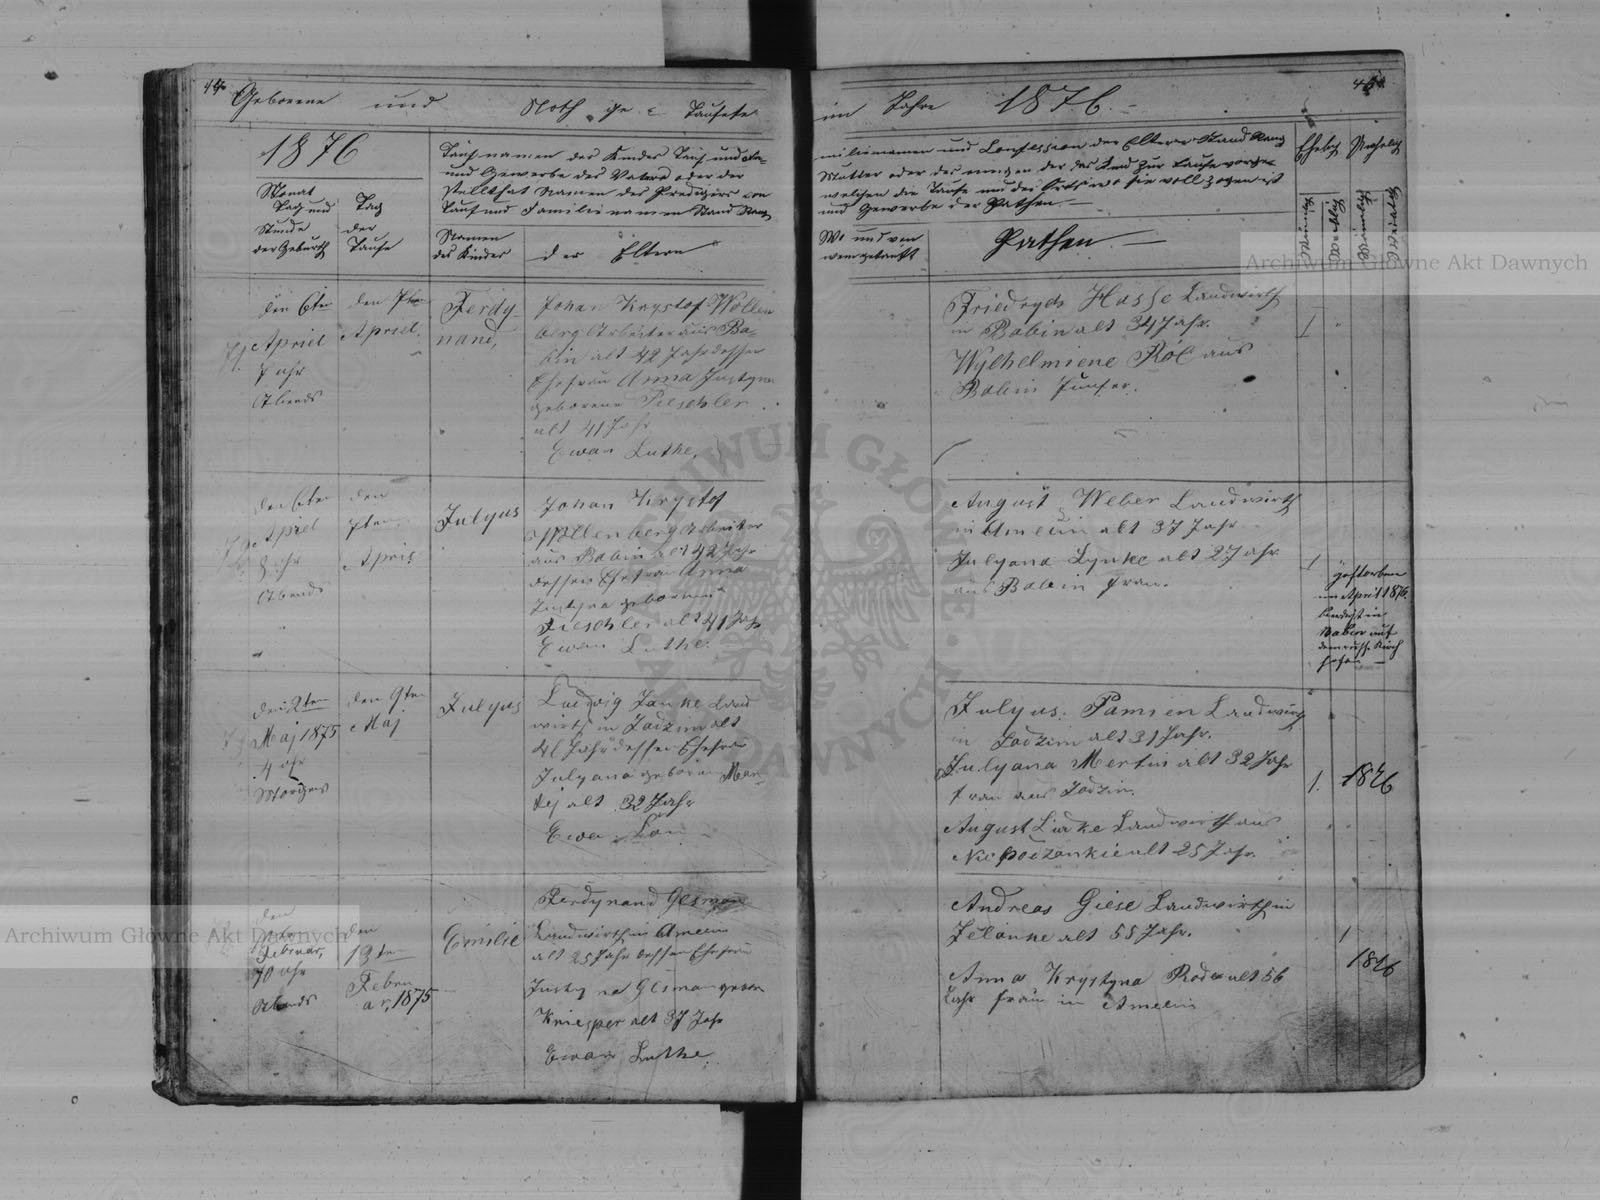 Geborene und Noth ge = Taufete
im Jahre 1876. =
1876
Taufnamen des Kindes Tauf und Fa-
milienamen und Confession der Eltern Stand Rang
und Gewerbe des Vaters oder der
Mutter oder des wegen der das Kind zur Taufe vorge-
Namen des Predigers von
welchen die Taufe und der Ort wo sie vollzogen ist
Tauf und Familienamen Stand Rang
und Gewerbe der Pathen. —
Ehelich Unehelich
Monat
Tag und
Stunde
der Geburth
Tag
der
Taufe
Namen
des Kindes
der Eltern
Wo und von
wem getauft
Pathen. —
den 6ten
Apriel
7 uhr
Abends
den
Apriel.
Ferdy-
nand,
Johan Krystof Wollen
berg Arbeiter aus Ba-
bin alt 42 Jahr dessen
Ehefrau Anna Justyna
geborene Tieschler
alt 41 Jahr
Ewan Luthe.
Friedrych Hasse Landwirth
in Babin alt 34 Jahr.
Wylhelmiene Röl aus
Babin Junfer.
1
den 6ten
Apriel
8 uhr
Abends
den
7ten
April
Julyus
Johan Krystof
Wollenberg Arbeiter
aus Babin alt 42 Jahr
dessen Ehefrau Anna
Justyna geborene
Tieschler alt 41 Jahr
Ewan Luthe.
August Weber Landwirth
in Amelin alt 37 Jahr
Julyana Lynke alt 27 Jahr
aus Babin frau.
1
gestorben
im April 1876.
in
Babin auf
dem Kirch
hofe
den 2ten
Maj 1875
4 uhr
Morgens
den 9ten
Maj
Julyus
Ludwig Janke Land
wirth in Jodzim alt
Jahr dessen Ehefrau
Julyana geboren Mar-
tej alt 32 Jahr
Ewan Lon
Julyus Pamsen Landwirth
in Jodzim alt 31 Jahr.
Julyana Mertin alt 32 Jahr
frau aus Jodzin.
August Lüdke Landwirth aus
alt 25 Jahr.
1.
1876
den
Februar,
10 uhr
Abends
den
13ten
Febru
ar, 1875
Emilie
Ferdynand Gesman
Landwirth in Amelin
alt 25 Jahr dessen Ehefrau
Justyna Gesman geborn
Kniesper alt 37 Jahr
Ewan Luthe.
Andreas Giese Landwirth in
Zelonke alt 55 Jahr.
Anna Krystyna Rode alt 56
Jahr frau in Amelin
1
1876
Archiwum Główne Akt Dawnych
Archiwum Główne Akt Dawnych
ARCHIWUM GŁÓWNE AKT DAWNYCH